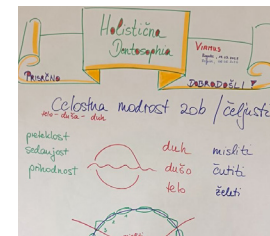 Holistična
Dentosophia
VIRTUS
PRISRČNO
DOBRODOŠLI
Celostna modrost zob / čeljusti
telo - duša - duh
preteklost
sedanjost
prihodnost
duh
dušo
telo
misliti
čutiti
želeti